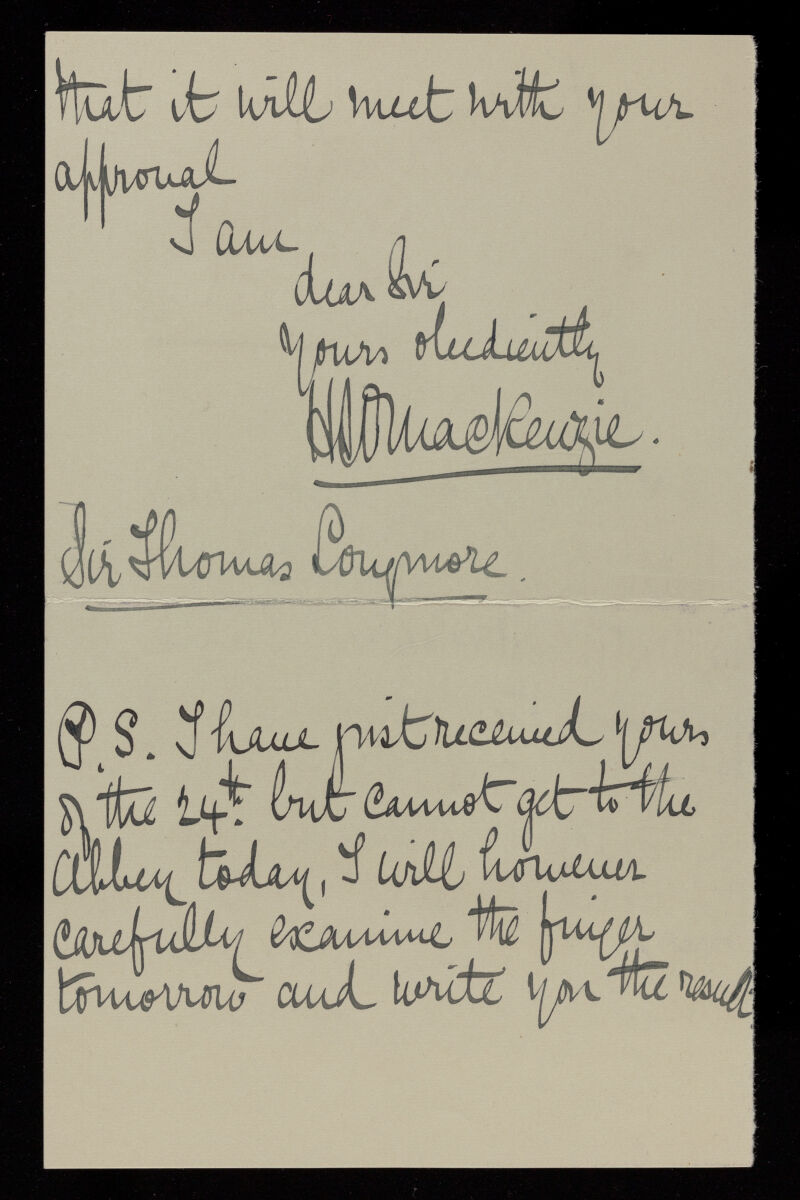 that it will meet with your
approval
I am
dear Sir
Yours obediently
HSOMackenzie.
Sir Thomas Longmore.
P.S. I have just received yours
of the 24th. but cannot get to the
Abbey today, I will however
carefully examine the finger
tomorrow and write you the result